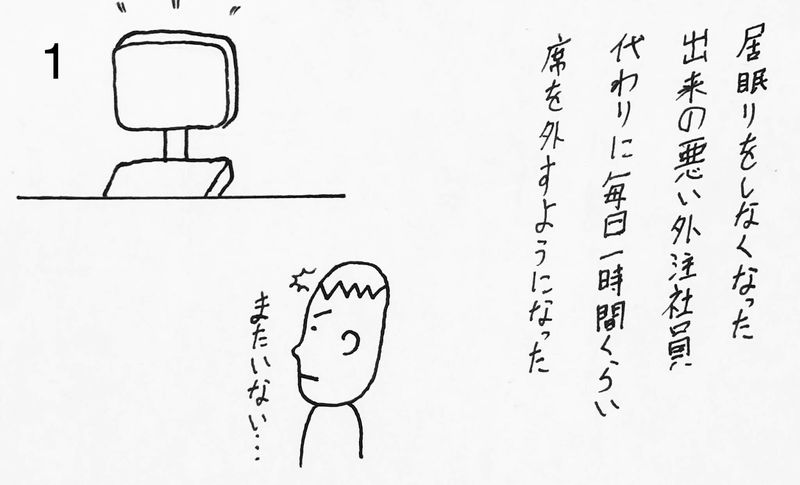 1
居眠りをしなくなった
出来の悪い外注社員
代わりに毎日一時間くらい
席を外すようになった
またいない…